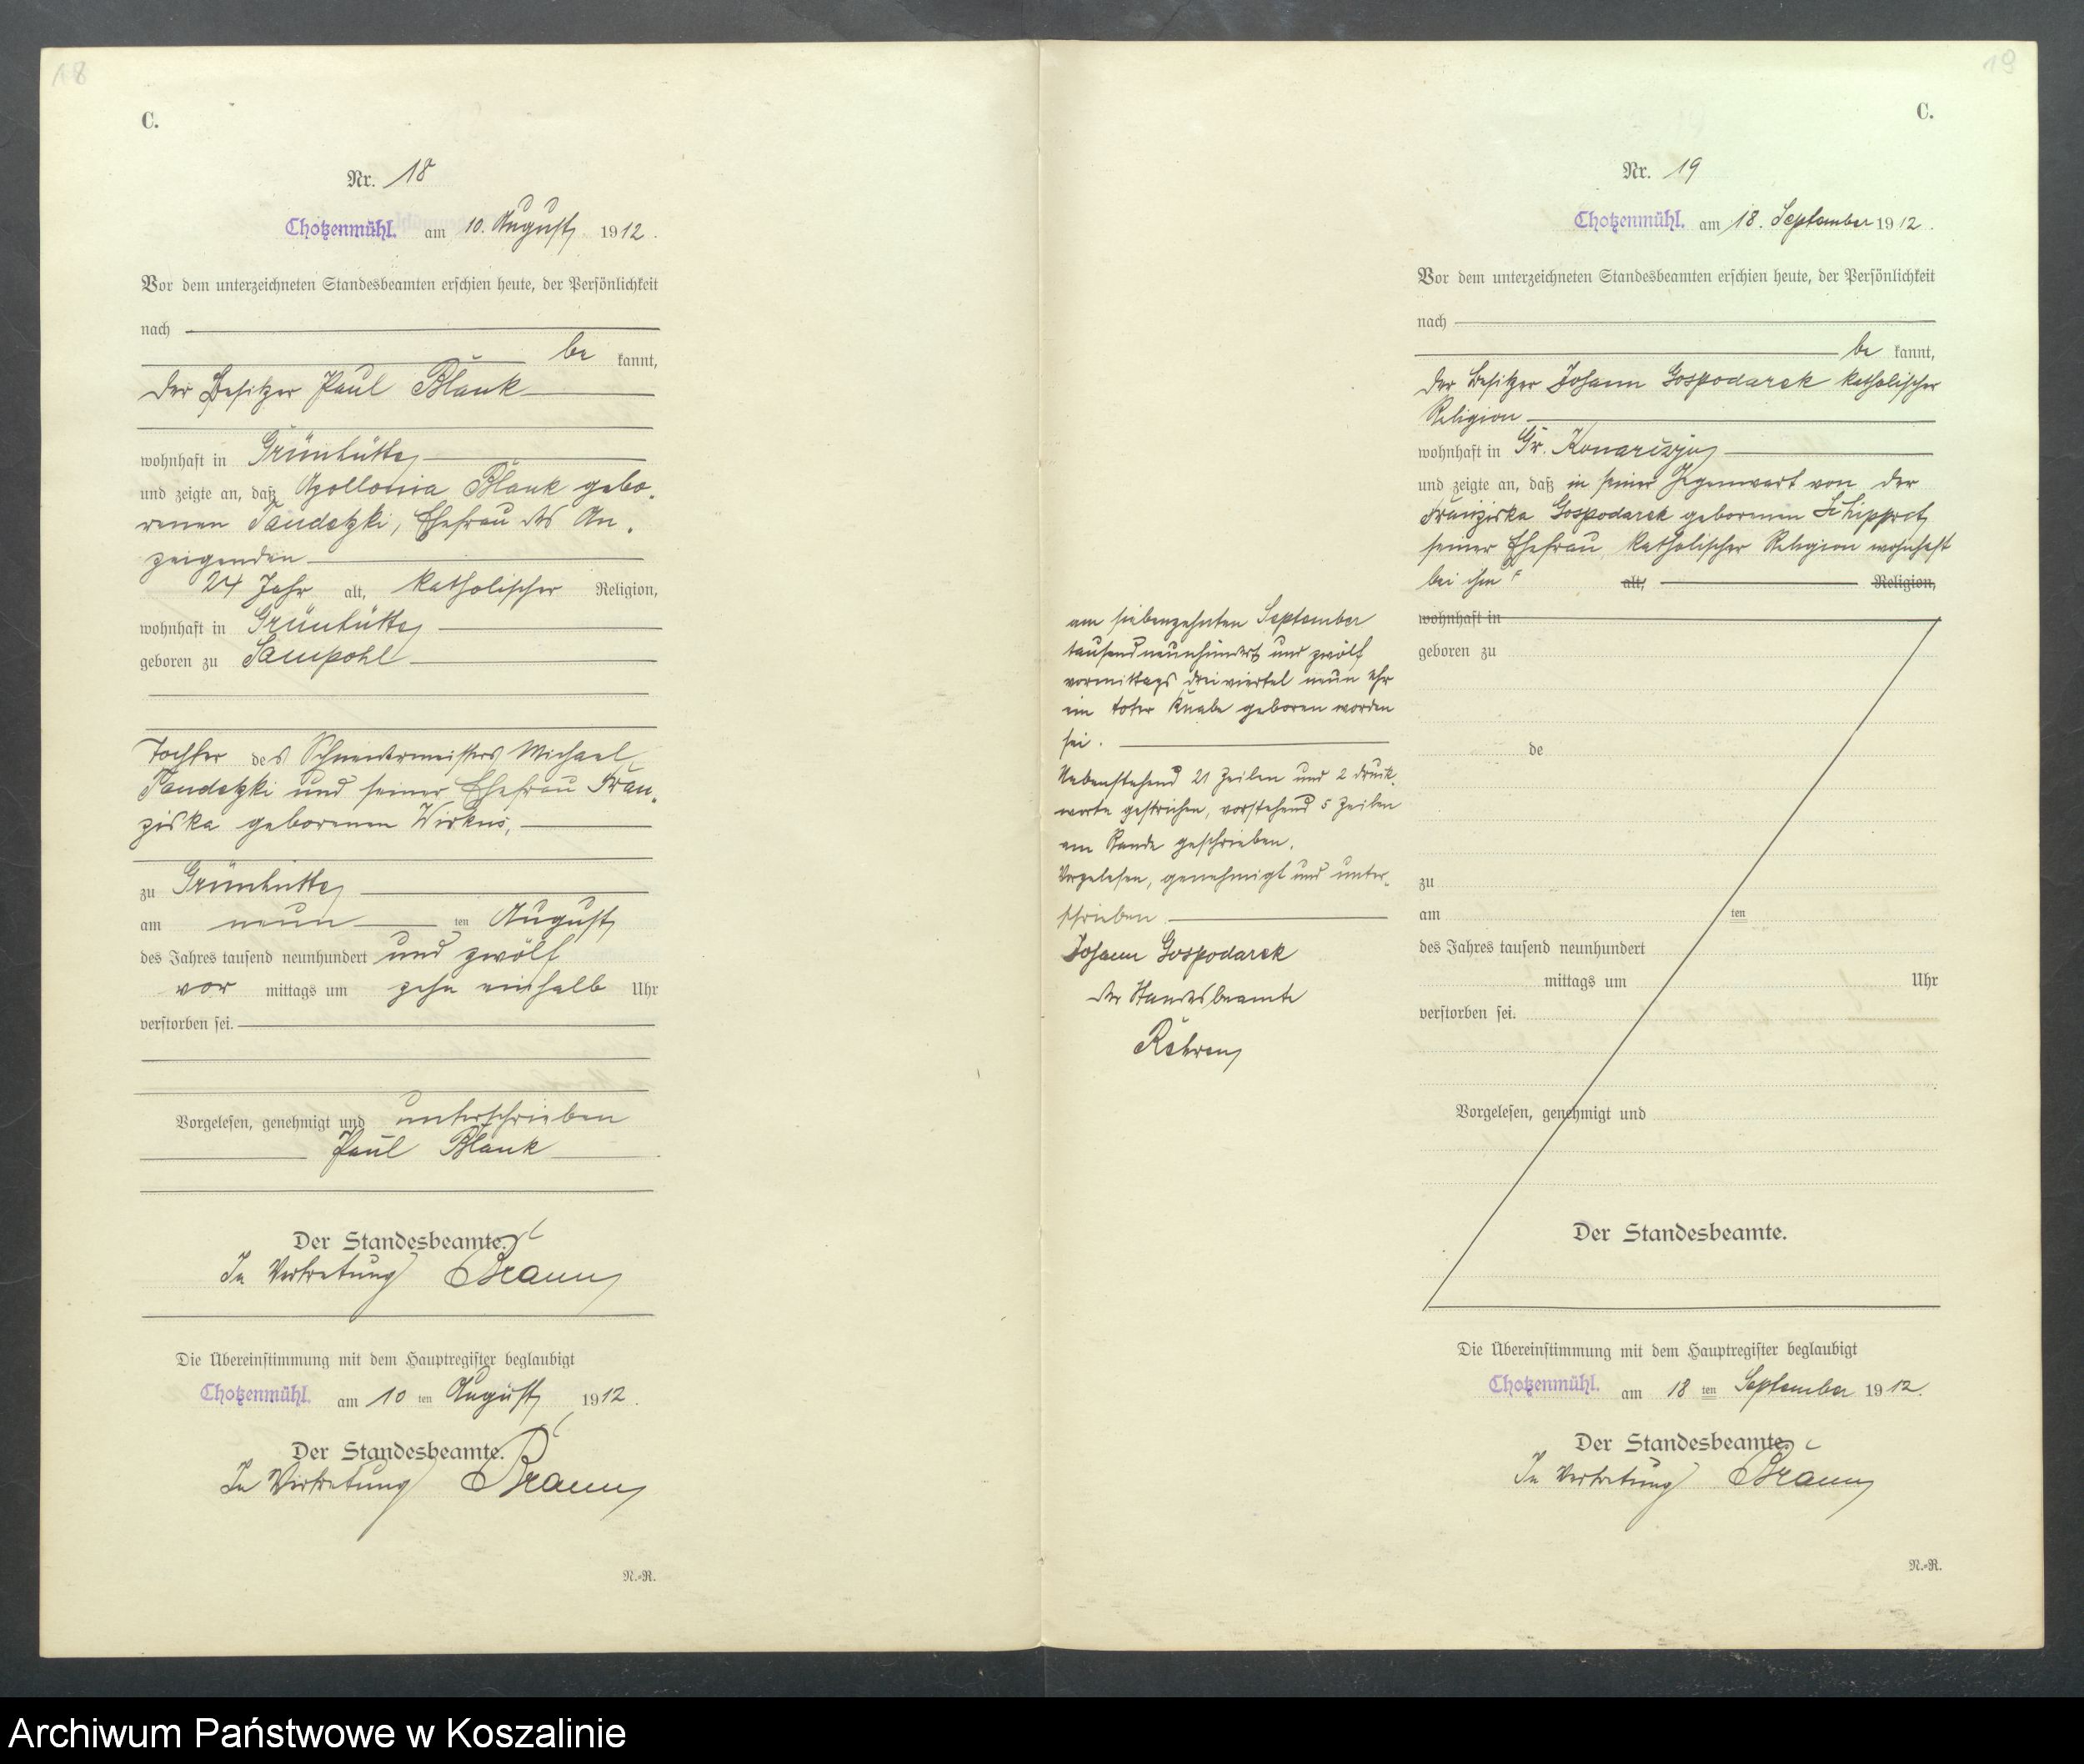 18
C.
Nr. 18
Chotzenmühl. am 10. August 1912.
Vor dem unterzeichneten Standesbeamten erschien heute, der Persönlichkeit
nach
be kannt,
der Besitzer Paul Blank
wohnhaft in Grünhütte
und zeigte an, daß Apollonia Blank gebo-
renen Tandetzki, Ehefrau des An-
zeigenden
24 Jahr alt, katholischer Religion,
wohnhaft in Grünhütte
geboren zu Sampohl
Tochter des Schneidermeisters Michael
Tandetzki und seiner Ehefrau Fran-
ziska geborenen Wirkus,
zu Grünhütte
am neun ten August
des Jahres tausend neunhundert und zwölf
vor mittags um zehn einhalb Uhr
verstorben sei.
Vorgelesen, genehmigt und unterschrieben
Paul Blank
Der Standesbeamte.
In Vertretung Braun
Die Übereinstimmung mit dem Hauptregister beglaubigt
Chotzenmühl. am 10 ten August 1912.
Der Standesbeamte.
In Vertretung Braun
N.-R.
19
C.
Nr. 19
Chotzenmühl. am 18. September 1912.
Vor dem unterzeichneten Standesbeamten erschien heute, der Persönlichkeit
nach
be kannt,
der Besitzer Johann Gospodarek katholischer
Religion
wohnhaft in Gr. Konarczyn
und zeigte an, daß in seiner Gegenwart von der
Franziska Gospodarek geborenen
seiner Ehefrau katholischer Religion wohnhaft
bei ihm alt, Religion,
wohnhaft in
geboren zu
de
zu
am ten
des Jahres tausend neunhundert
mittags um Uhr
verstorben sei.
Vorgelesen, genehmigt und
Der Standesbeamte.
am siebenzehnten September
tausendneunhundert und zwölf
vormittags dreiviertel neun Uhr
ein toter Knabe geboren worden
sei.
Nebenstehend 21 Zeilen und 2 Druck-
worte gestrichen, vorstehend 5 Zeilen
am Rande geschrieben.
Vorgelesen, genehmigt und unter-
schrieben
Johann Gospodarek
der Standesbeamte
Die Übereinstimmung mit dem Hauptregister beglaubigt
Chotzenmühl. am 18 ten September 1912.
Der Standesbeamte.
In Vertretung Braun
N.-R.
Archiwum Państwowe w Koszalinie